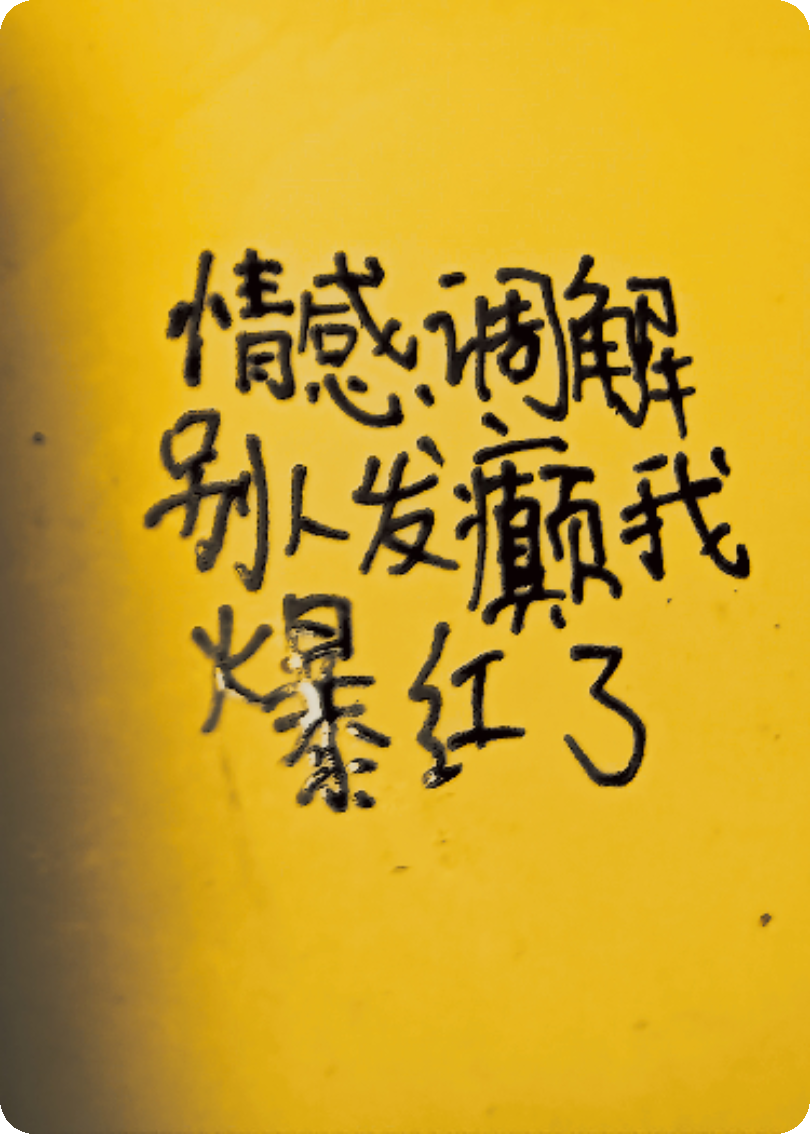 情感调解
别人发癫我
爆红了